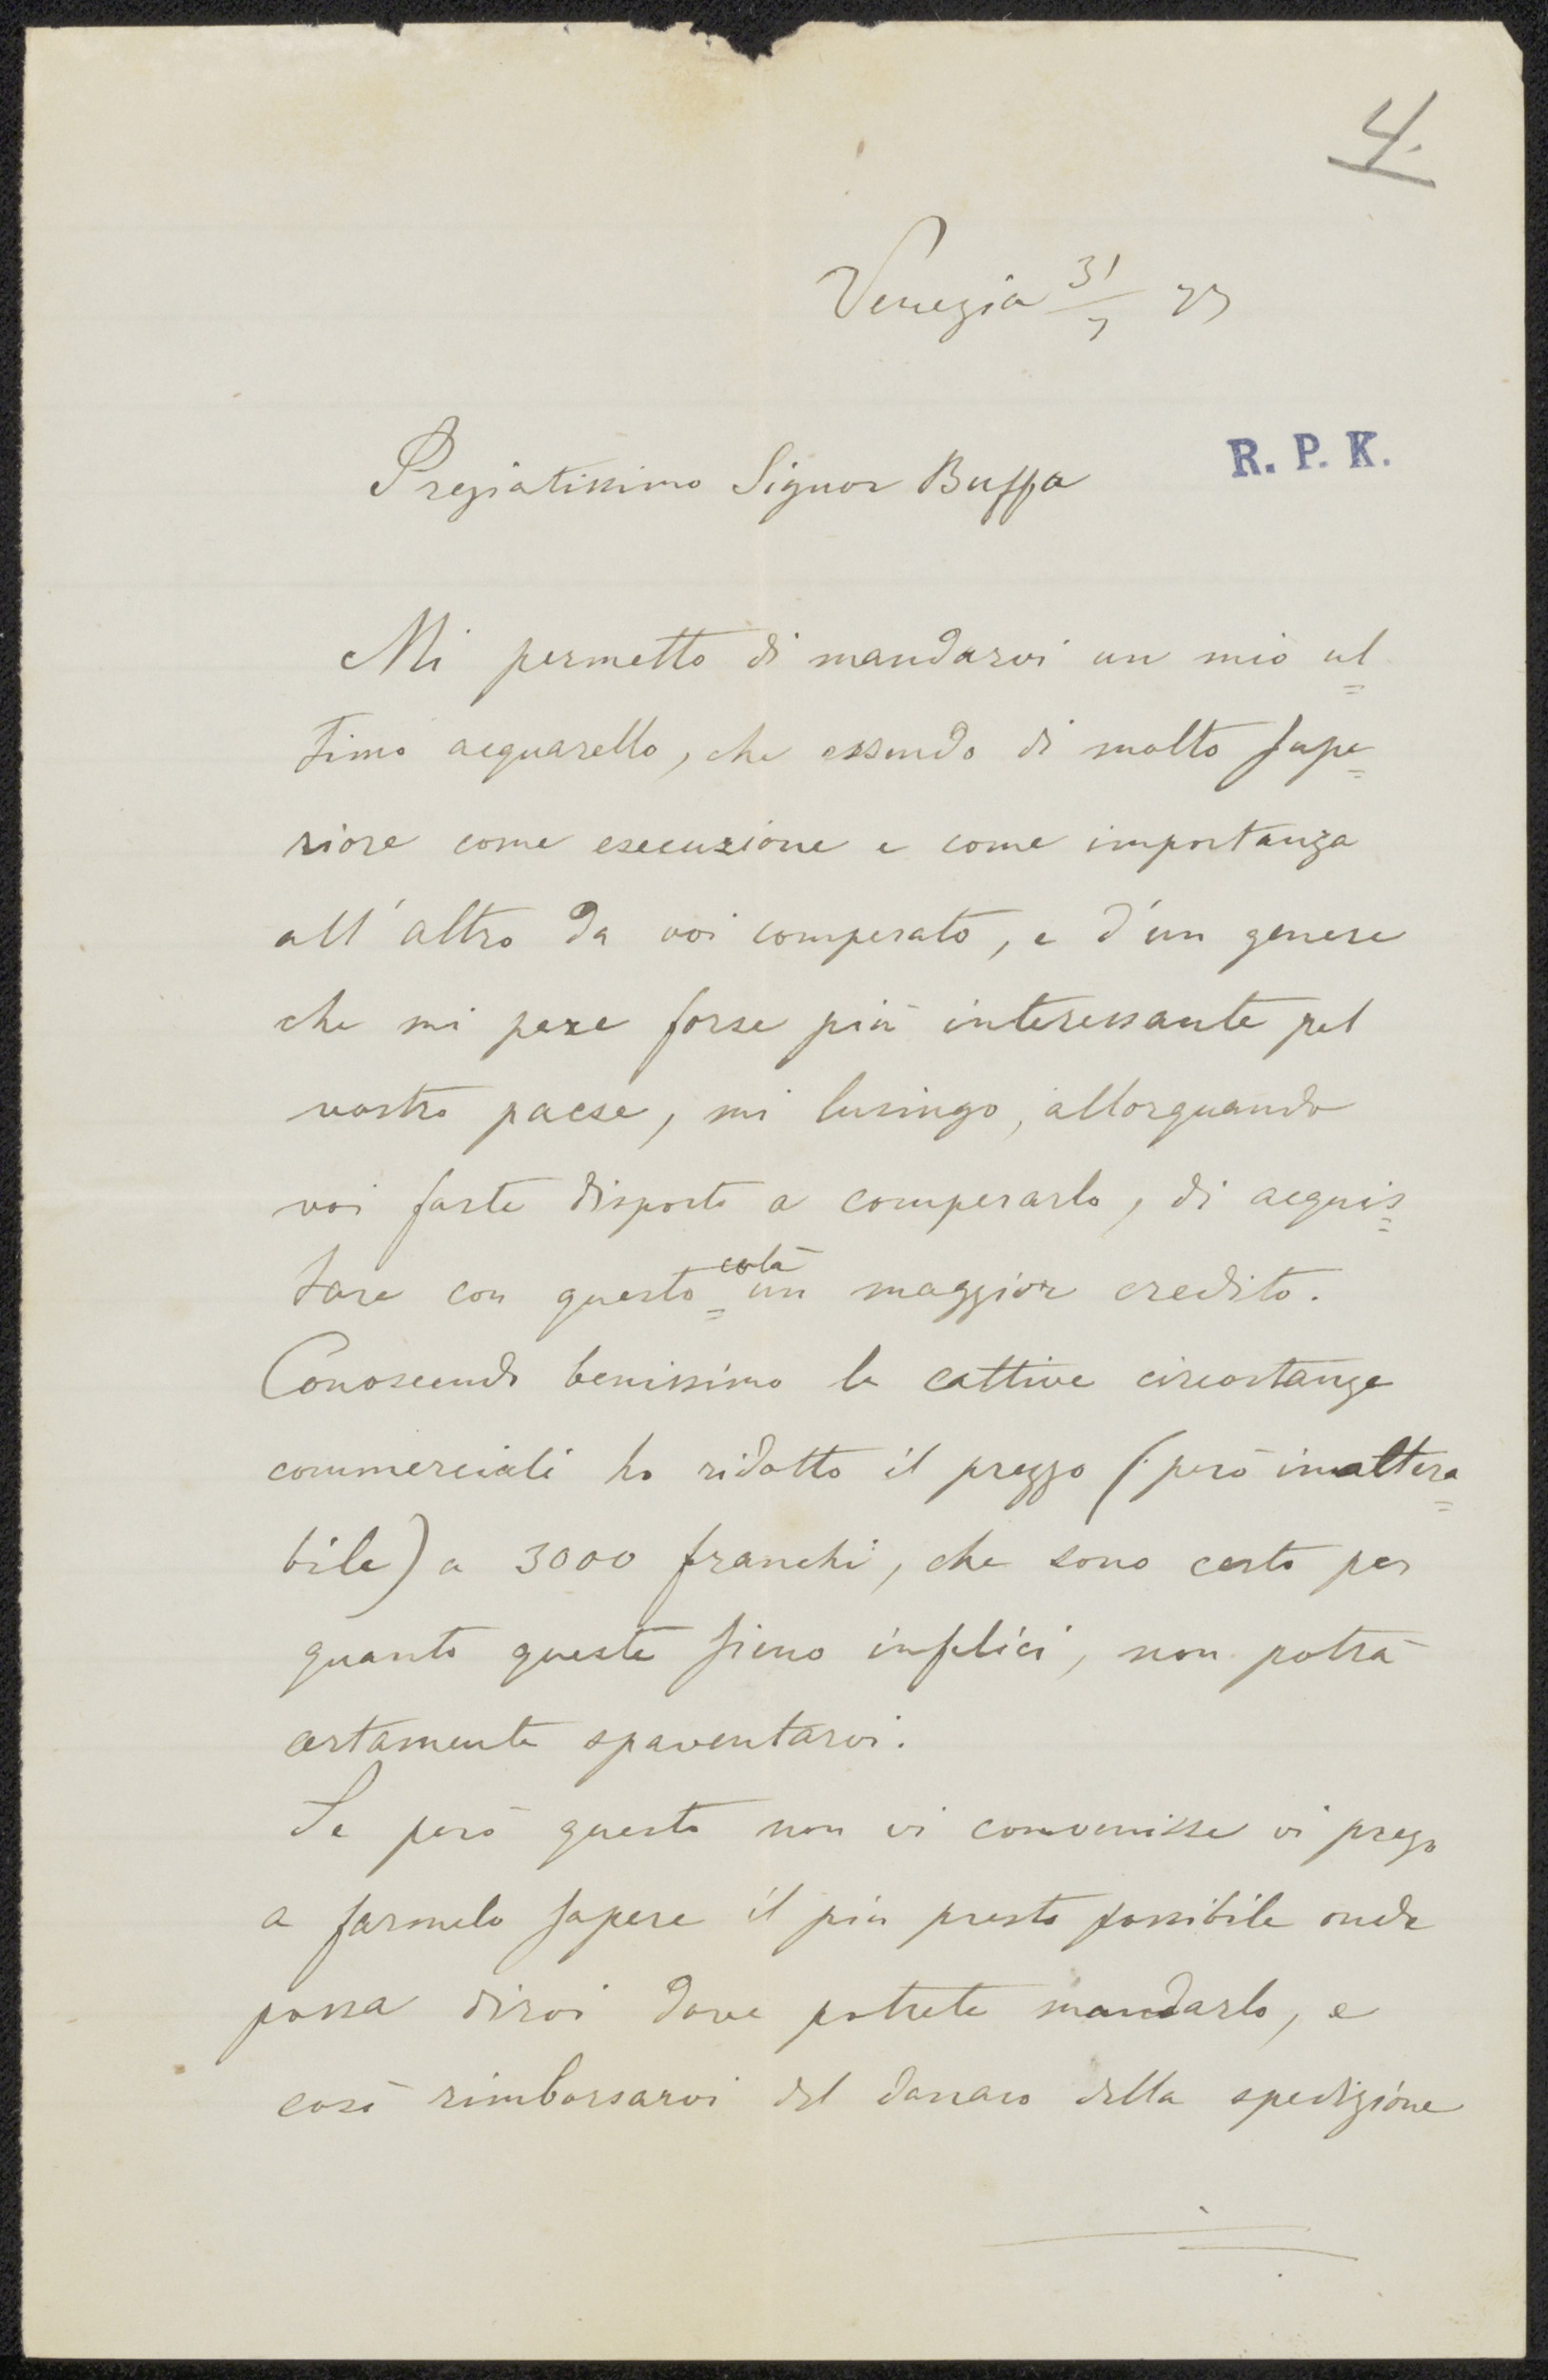 4.
Venezia 31/7 77
R. P. K.
Pregiatissimo Signor Buffa
Mi permetto di mandarvi un mio ul=
timo acquarello, che essendo di molto supe=
riore come esecuzione e come importanza
all'altro da voi comperato, e d'un genere
che mi pare forse più interessante pel
vostro paese, mi lusingo, allorquando
voi foste disposto a comperarlo, di acquis=
tare con questo colà un maggior credito.
Conoscendo benissimo le cattive circostanze
commerciali ho ridotto il prezzo (però inaltera=
bile) a 3000 franchi, che sono certo per
quanto queste sieno infelici, non potrà
certamente spaventarvi.
Se però questo non vi convenisse vi prego
a farmelo sapere il più presto possibile onde
possa dirvi dove potrete mandarlo, e
così rimborsarvi del danaro della spedizione